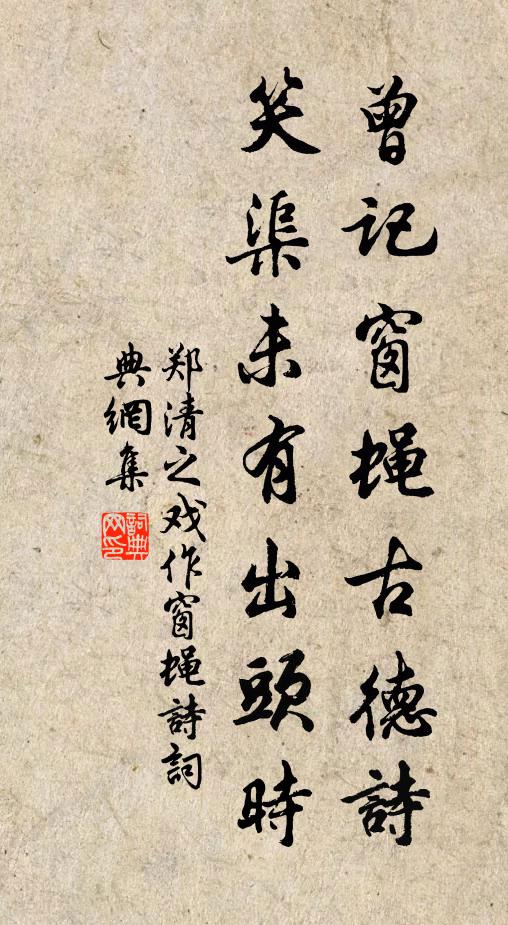 曾记窗蝇古德詩
笑渠未有出頭時
郑清之戏作窗蝇詩詞
典網集
詞典网印